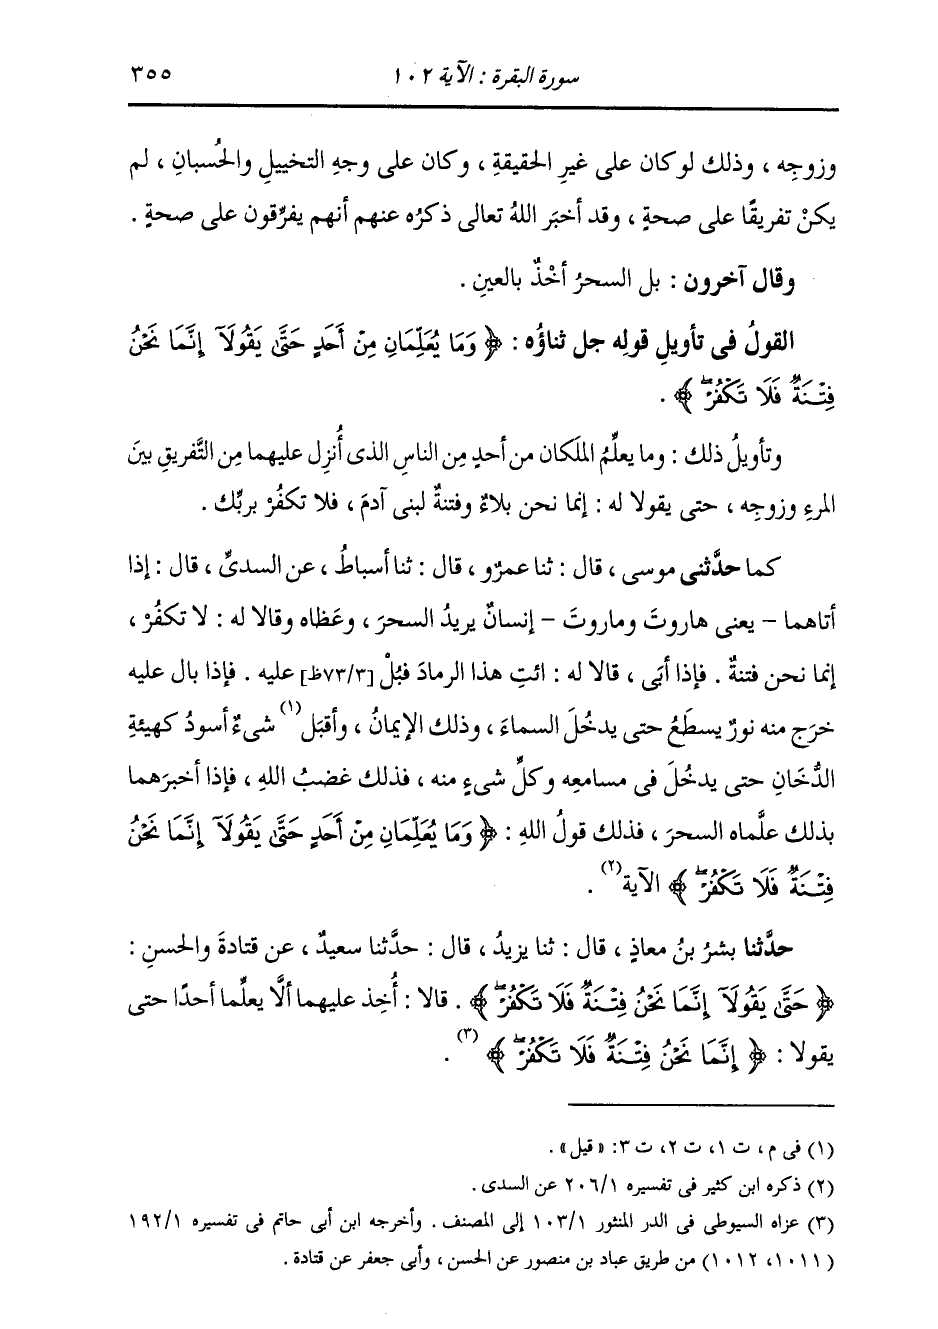 سورة البقرة : الآية ١٠٢
٣٥٥
وزوجِه ، وذلك لو كان على غيرِ الحقيقةِ ، وكان على وجهِ التخييلِ والحُسبانِ ، لم
يكنْ تفريقًا على صحةٍ ، وقد أخبَر اللهُ تعالى ذكرُه عنهم أنهم يفرِّقون على صحةٍ .
وقال آخرون : بل السحرُ أخْذٌ بالعينِ .
القولُ فى تأويلِ قولِه جل ثناؤُه : ﴿ وَمَا يُعَلِّمَانِ مِنْ أَحَدٍ حَتَّىٰ يَقُولَآ إِنَّمَا نَحْنُ
فِتْنَةٌ فَلَا تَكْفُرْۖ ﴾ .
وتأويلُ ذلك : وما يعلِّمُ الملَكان من أحدٍ مِن الناسِ الذى أُنزِل عليهما مِن التَّفريقِ بينَ
المرءِ وزوجِه ، حتى يقولا له : إنما نحن بلاءٌ وفتنةٌ لبنى آدمَ ، فلا تكفُرْ بربِّك .
كما حدَّثنى موسى ، قال : ثنا عمرٌو ، قال : ثنا أسباطُ ، عن السدىِّ ، قال : إذا
أتاهما - يعنى هاروتَ وماروتَ - إنسانٌ يريدُ السحرَ ، وعَظاه وقالا له : لا تكفُرْ ،
إنما نحن فتنةٌ . فإذا أبَى ، قالا له : ائتِ هذا الرمادَ فبُلْ [٧٣/٣ظ] عليه . فإذا بال عليه
خرَج منه نورٌ يسطَعُ حتى يدخُلَ السماءَ ، وذلك الإيمانُ ، وأقبَل(١) شىءٌ أسودُ كهيئةِ
الدُّخَانِ حتى يدخُلَ فى مسامعِه وكلِّ شىءٍ منه ، فذلك غضبُ اللهِ ، فإذا أخبرَهما
بذلك علَّماه السحرَ ، فذلك قولُ اللهِ : ﴿ وَمَا يُعَلِّمَانِ مِنْ أَحَدٍ حَتَّىٰ يَقُولَآ إِنَّمَا نَحْنُ
فِتْنَةٌ فَلَا تَكْفُرْۖ ﴾ الآية(٢) .
حدَّثنا بشرُ بنُ معاذٍ ، قال : ثنا يزيدُ ، قال : حدَّثنا سعيدٌ ، عن قتادةَ والحسنِ :
﴿ حَتَّىٰ يَقُولَآ إِنَّمَا نَحْنُ فِتْنَةٌ فَلَا تَكْفُرْۖ ﴾ . قالا : أُخِذ عليهما ألَّا يعلِّما أحدًا حتى
يقولا : ﴿ إِنَّمَا نَحْنُ فِتْنَةٌ فَلَا تَكْفُرْۖ ﴾(٣) .
(١) فى م، ت ١، ت ٢، ت ٣: «قيل» .
(٢) ذكره ابن كثير فى تفسيره ٢٠٦/١ عن السدى .
(٣) عزاه السيوطى فى الدر المنثور ١٠٣/١ إلى المصنف . وأخرجه ابن أبى حاتم فى تفسيره ١٩٢/١
(١٠١١، ١٠١٢) من طريق عباد بن منصور عن الحسن ، وأبى جعفر عن قتادة .